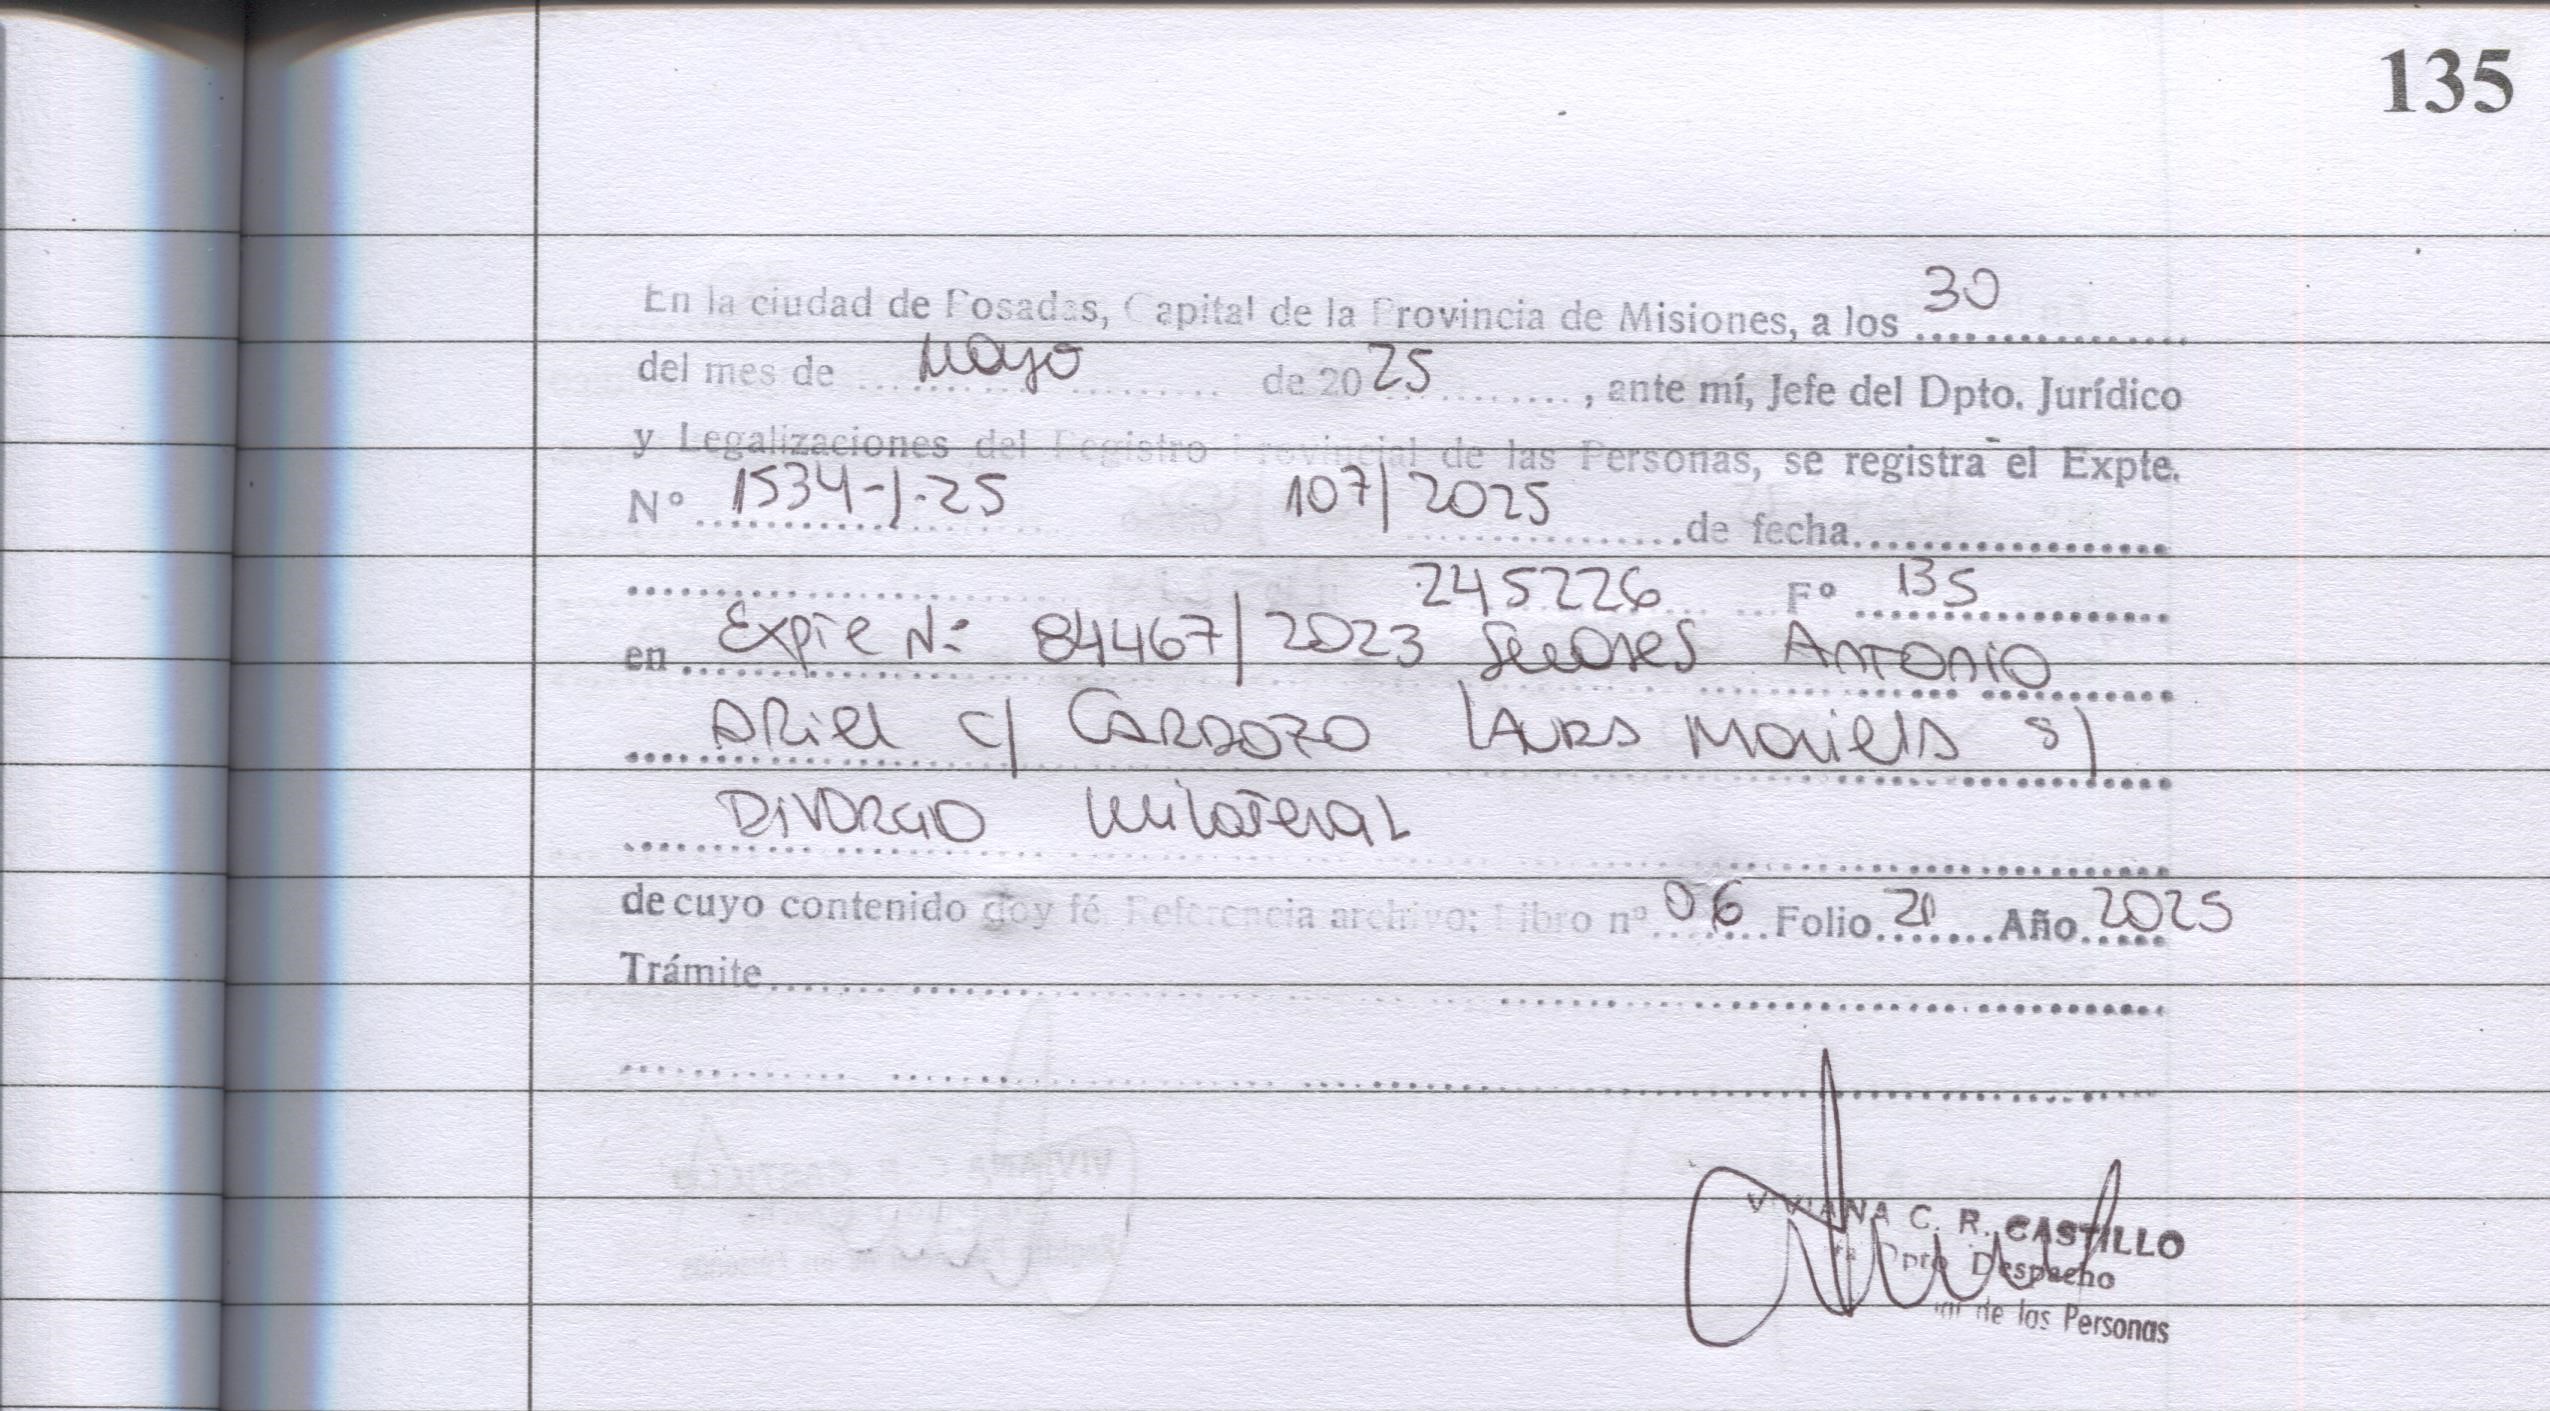 135
En la ciudad de Posadas, Capital de la Provincia de Misiones, a los 30
del mes de Mayo de 2025, ante mí, Jefe del Dpto. Jurídico
y Legalizaciones del Registro Provincial de las Personas, se registra el Expte.
Nº 1534-J-25 107/2025 de fecha
245226 Fº 135
en Expte Nº 84467/2023 Antonio
Ariel c/ Cardozo Laura Mariela s/
Divorcio Unilateral
de cuyo contenido doy fé. Referencia archivo: Libro nº 06 Folio 21 Año 2025
Trámite
VIVIANA C. R. CASTILLO
Dpto Despacho
de las Personas